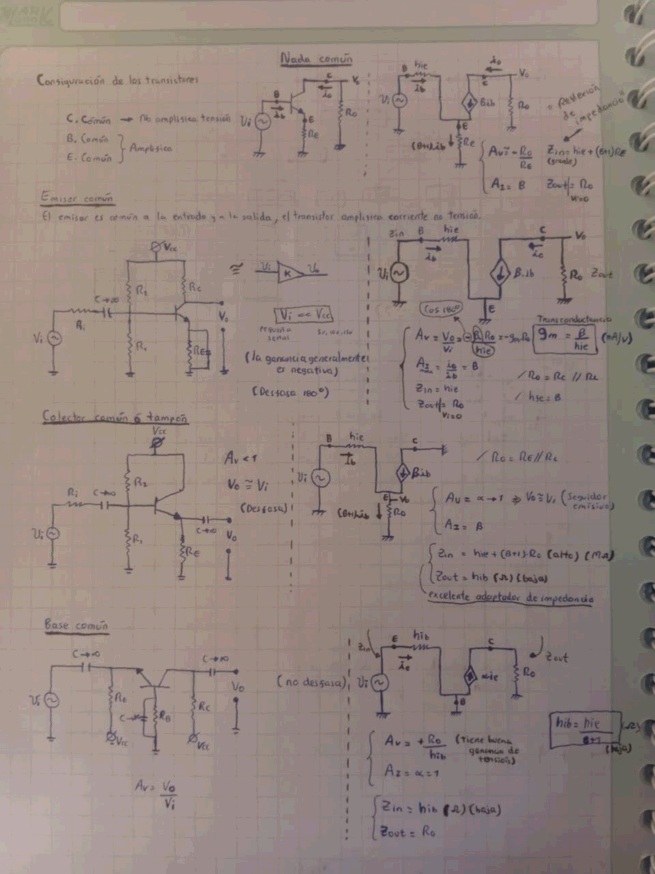 Nada común
Configuración de los transistores
C. Común → No amplifica tensión
B. Común
E. Común } Amplifica
Vi B ib C io Vo E RE Ro
Vi B hie ib βib C io Vo Ro
(β+1)ib E RE
= Reflexión de impedancia
Av ≅ -Ro/RE Zin = hie + (β+1)RE
AI = β Zout|Vi=0 = Ro
Emisor común
El emisor es común a la entrada y a la salida, el transistor amplifica corriente no tensión.
Vcc
R2 Rc
C→∞
Ri
Vi R1 RE Vo
≅ Vi K Vo
Vi << Vcc
pequeña señal
(la ganancia generalmente es negativa)
(Desfasa 180°)
Zin B hie C Vo
ib io
Vi β·ib Ro Zout
E
Cos 180°
Av = Vo/Vi = -β Ro/hie = -gm Ro
Transconductancia
gm = β/hie (mA/V)
AI = io/ib = β
Zin = hie
Zout|Vi=0 = Ro
/ Ro = Rc // RL
/ hfe = β
Colector común ó tampón
Vcc
R2
Ri C→∞
Vi R1 RE C→∞ Vo
Av < 1
Vo ≅ Vi
(Desfasa)
B hie C
Ib
Vi βib
E Vo
(β+1)ib Ro
/ Ro = RE // RL
Av = α → 1 ⇒ Vo ≅ Vi (Seguidor emisivo)
AI = β
Zin = hie + (β+1)·Ro (alta) (MΩ)
Zout = hib (Ω) (baja)
excelente adaptador de impedancia
Base común
C→∞ C→∞
Vi RE C→∞ RB Rc Vo
Vcc Vcc
(no desfasa)
Av = Vo/Vi
Zin E hib C Zout
ie
Vi αie Ro
B
hib = hie/β+1 (Ω) (baja)
Av = +Ro/hib (Tiene buena ganancia de tensión)
AI = α = 1
Zin = hib (Ω) (baja)
Zout = Ro